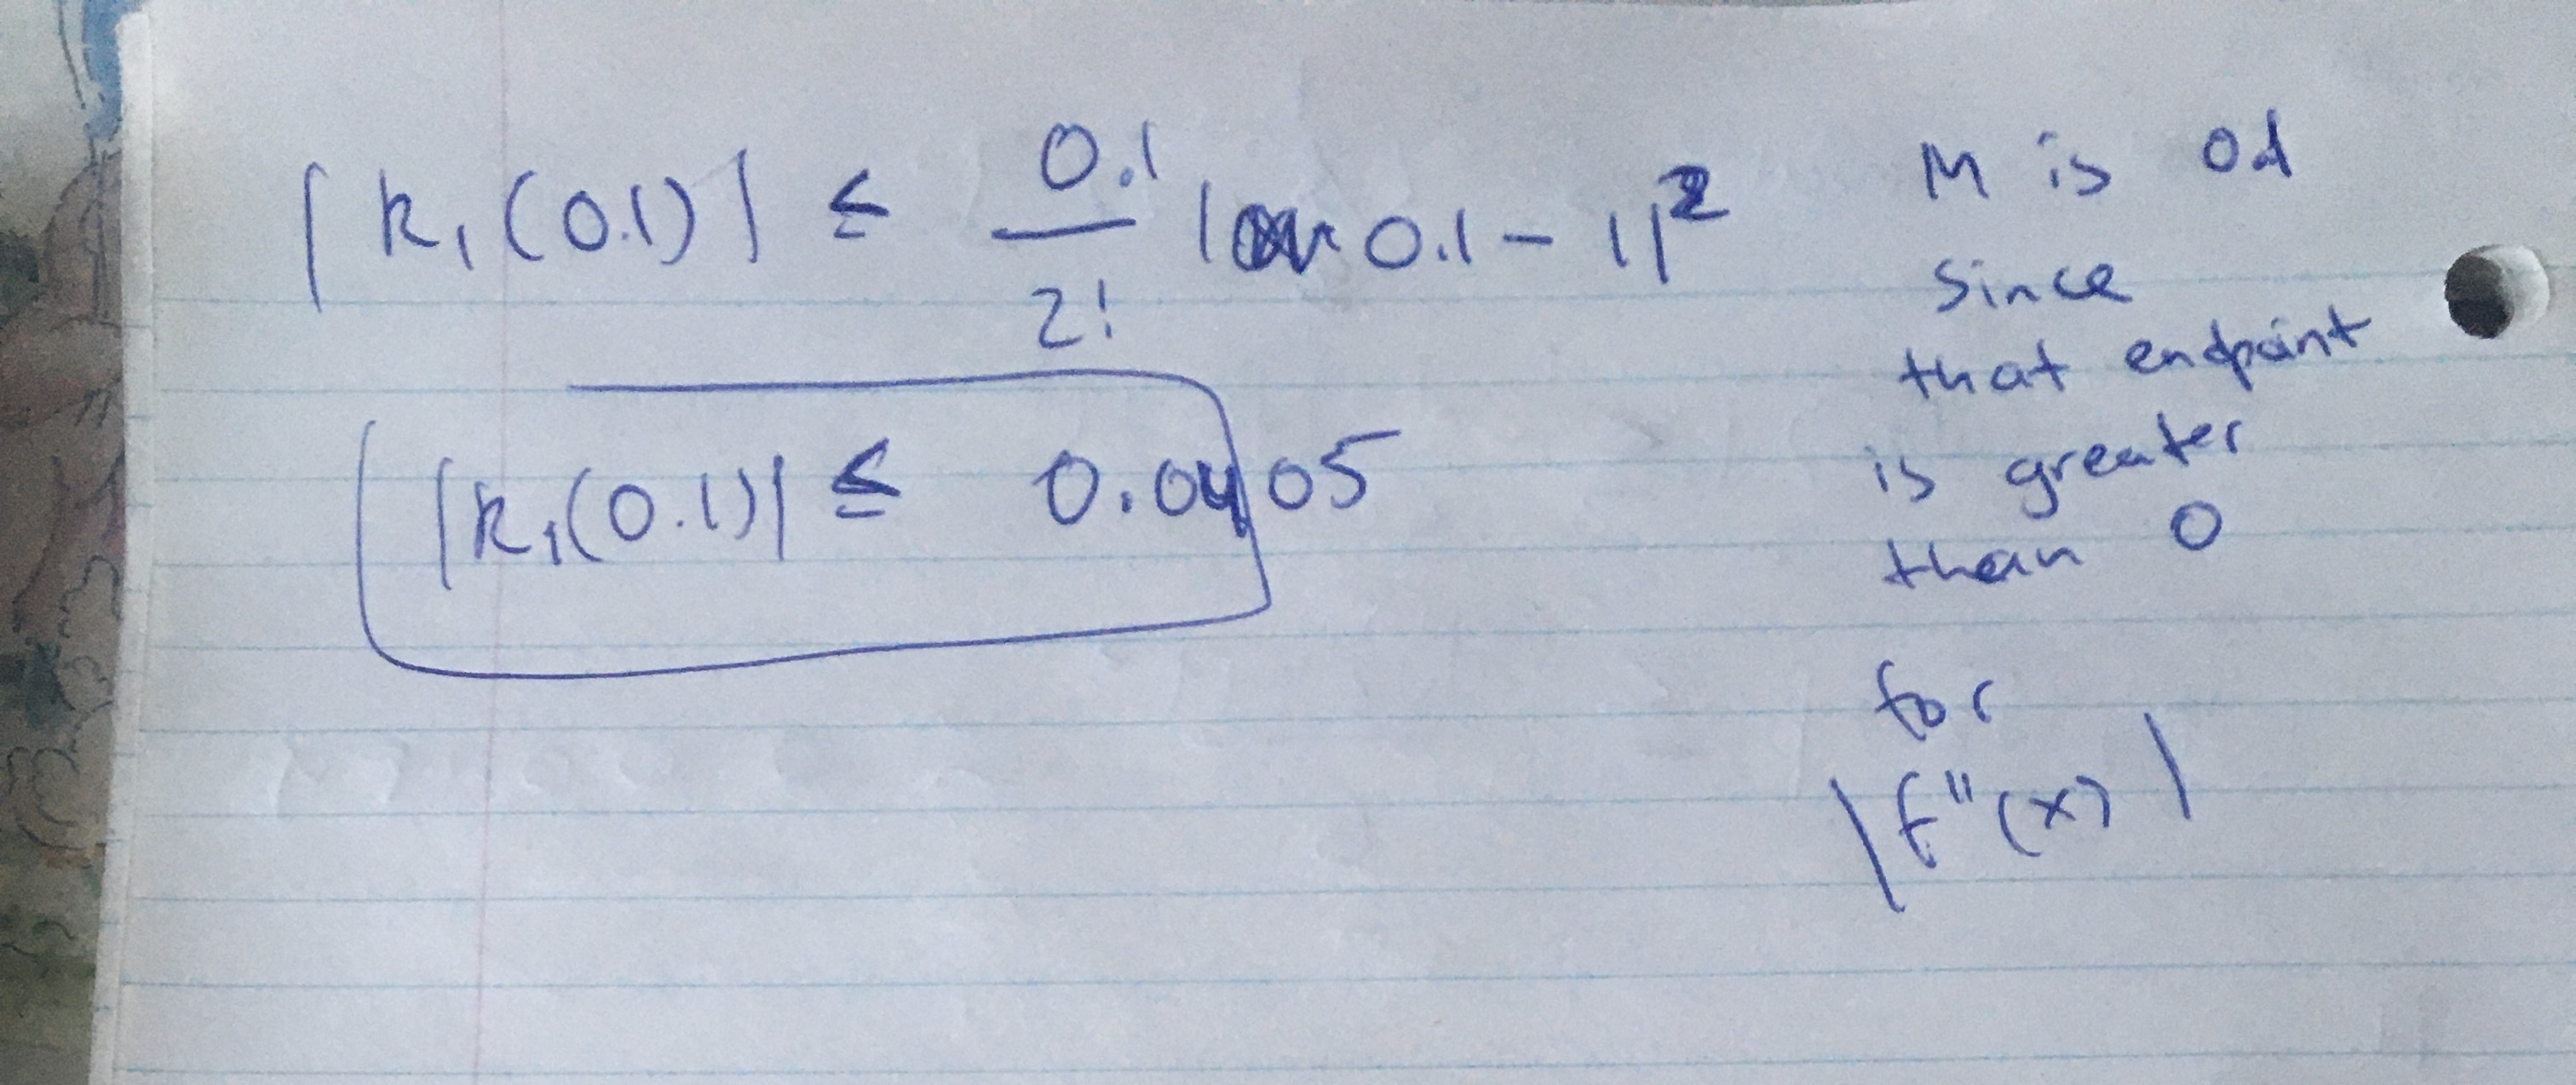 |R₁(0.1)| ≤ 0.1/2! |0.1 - 1|²
|R₁(0.1)| ≤ 0.0405
M is 0.1
since
that endpoint
is greater
than 0
for
|f"(x)|